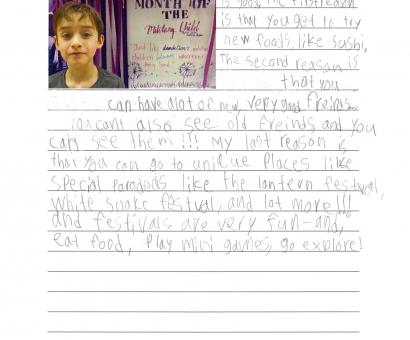 MONTH OF
THE
Military Child
Just like dandelions, military
children bloom wherever
they land.
is good. The first reason
is that you get to try
new foods like sushi.
The second reason is
that you
can have alot of new very good freinds.
You cant also see old freinds and you
can see them!!! My last reason is
that you can go to unique places like
special like the lantern festival,
white snake festival, and lot more!!!
and festivals are very fun-and,
eat food, play mini games, go explore!